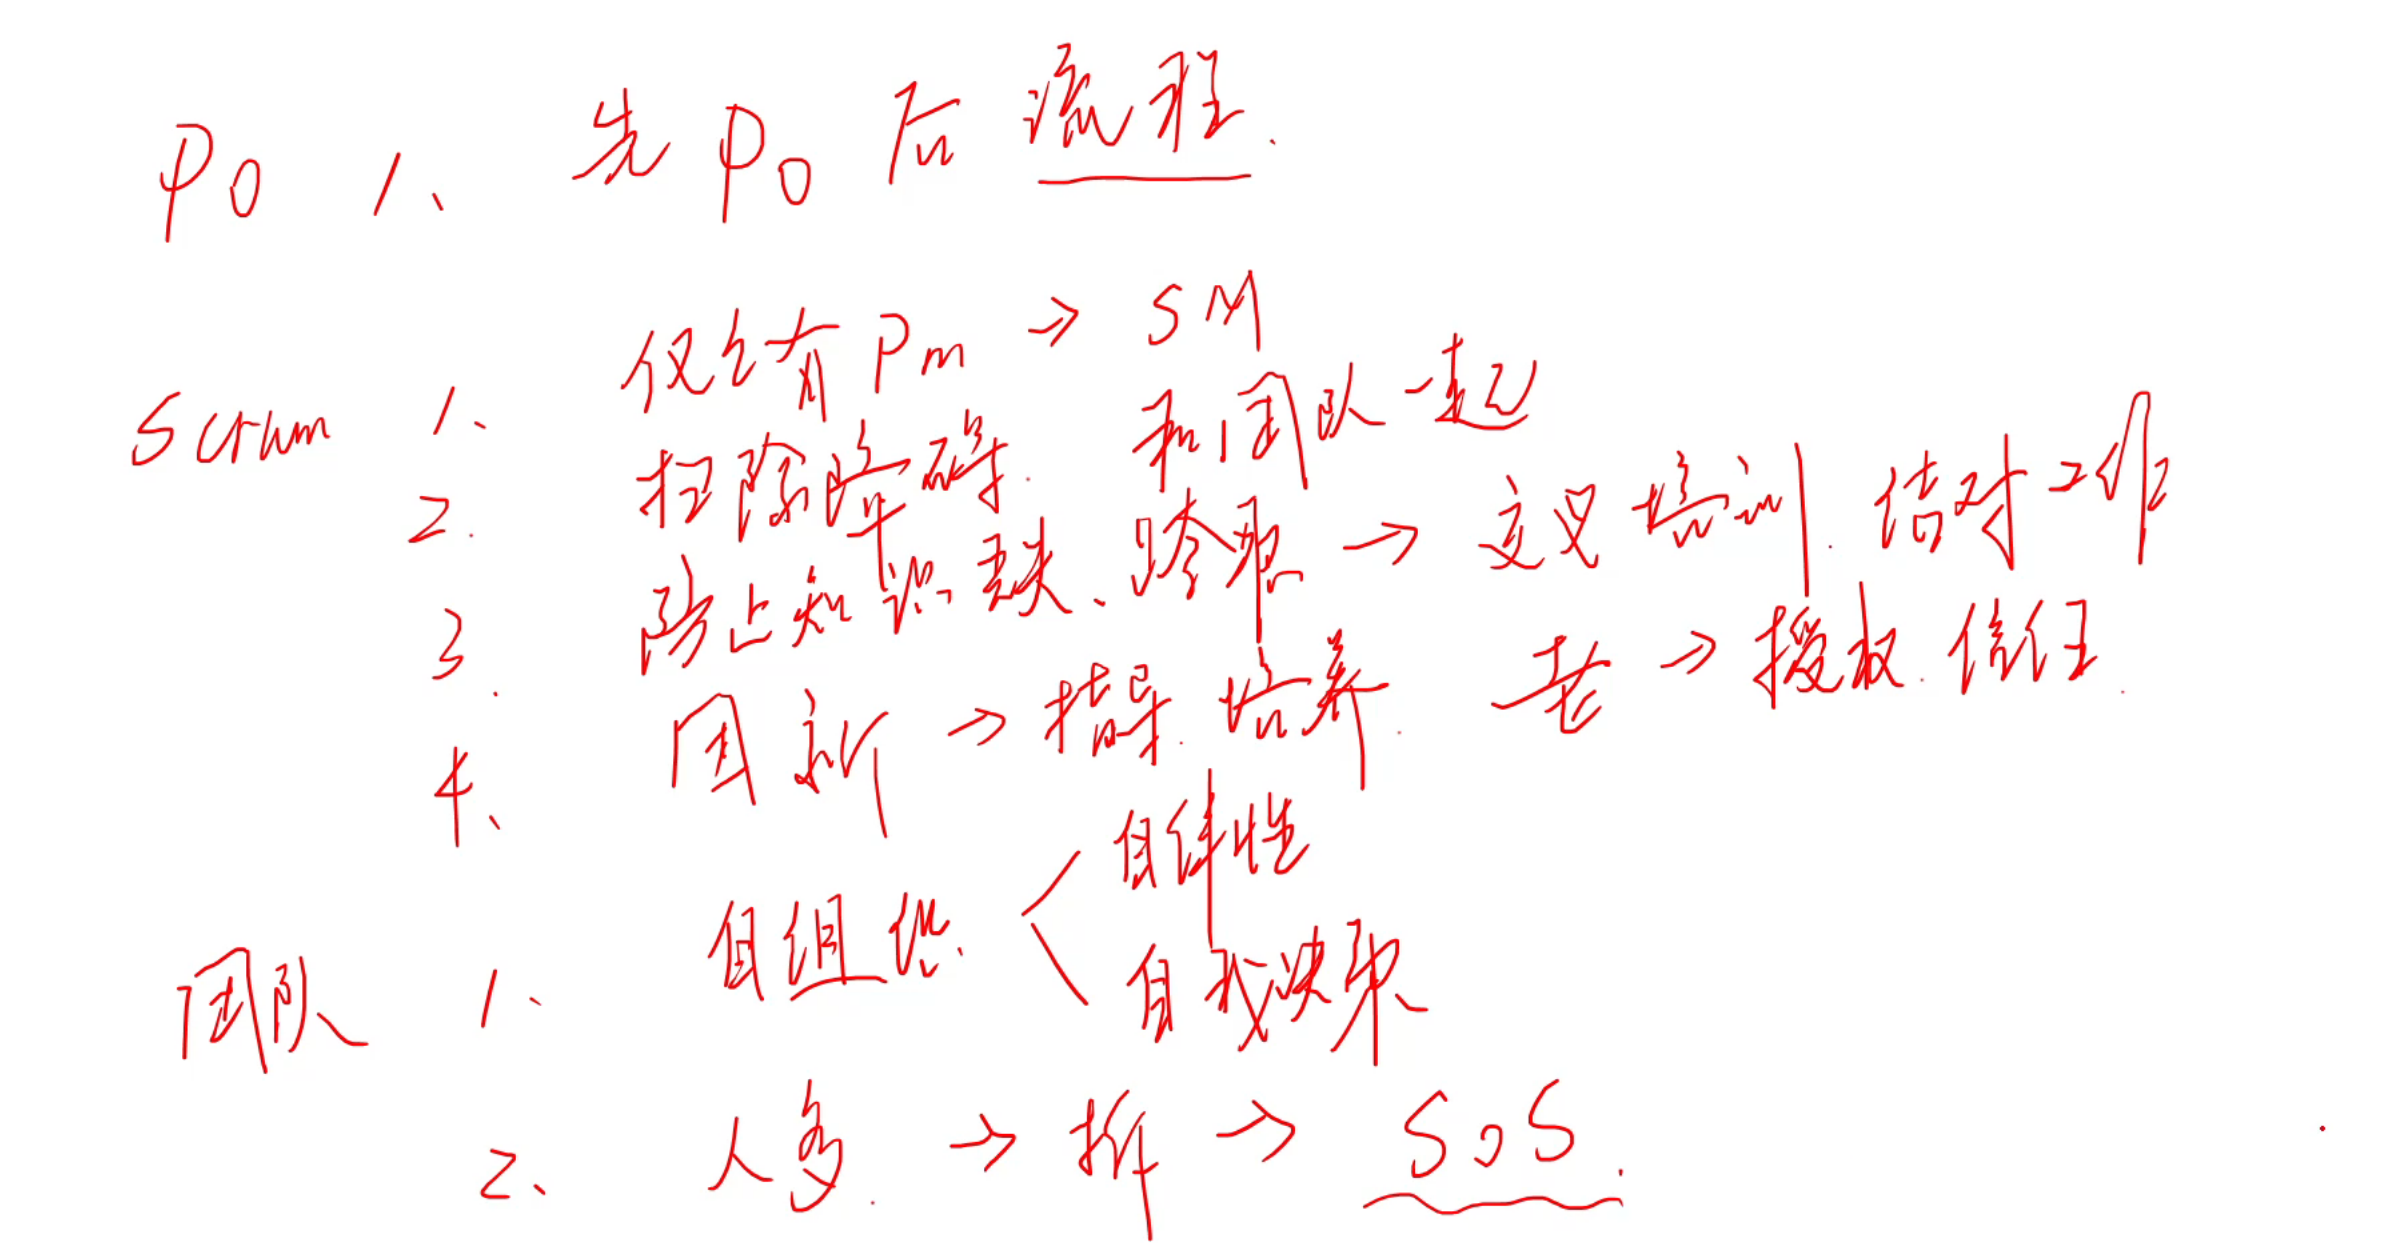 PO 1、 先PO后流程.
Scrum 1、 仅有PM → SM
2. 扫除障碍. 和团队一起
3. 路上知识缺、跨职 → 交叉培训. 结对工作
4、 团新 → 指导. 培养. 老 → 授权. 信任.
团队 1、 自组织. < 自律性
自我决策
2、 人多. → 拆 → SoS.